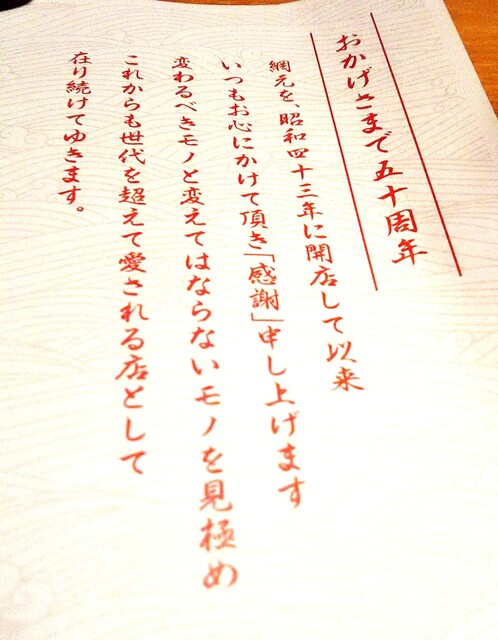 おかげさまで五十周年
網元を、昭和四十三年に開店して以来
いつもお心にかけて頂き「感謝」申し上げます
変わるべきモノと変えてはならないモノを見極め
これからも世代を超えて愛される店として
在り続けてゆきます。